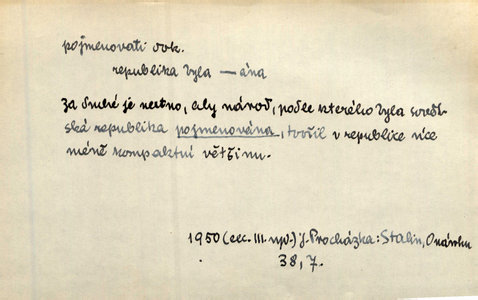 pojmenovati dok.
republika byla — ána
Za druhé je nutno, aby národ, podle kterého byla sovět-
ská republika pojmenována, tvořil v republice více
méně kompaktní většinu.
1950 (lec. III. npl.) J. Procházka: Stalin, O nár.
38, 7.